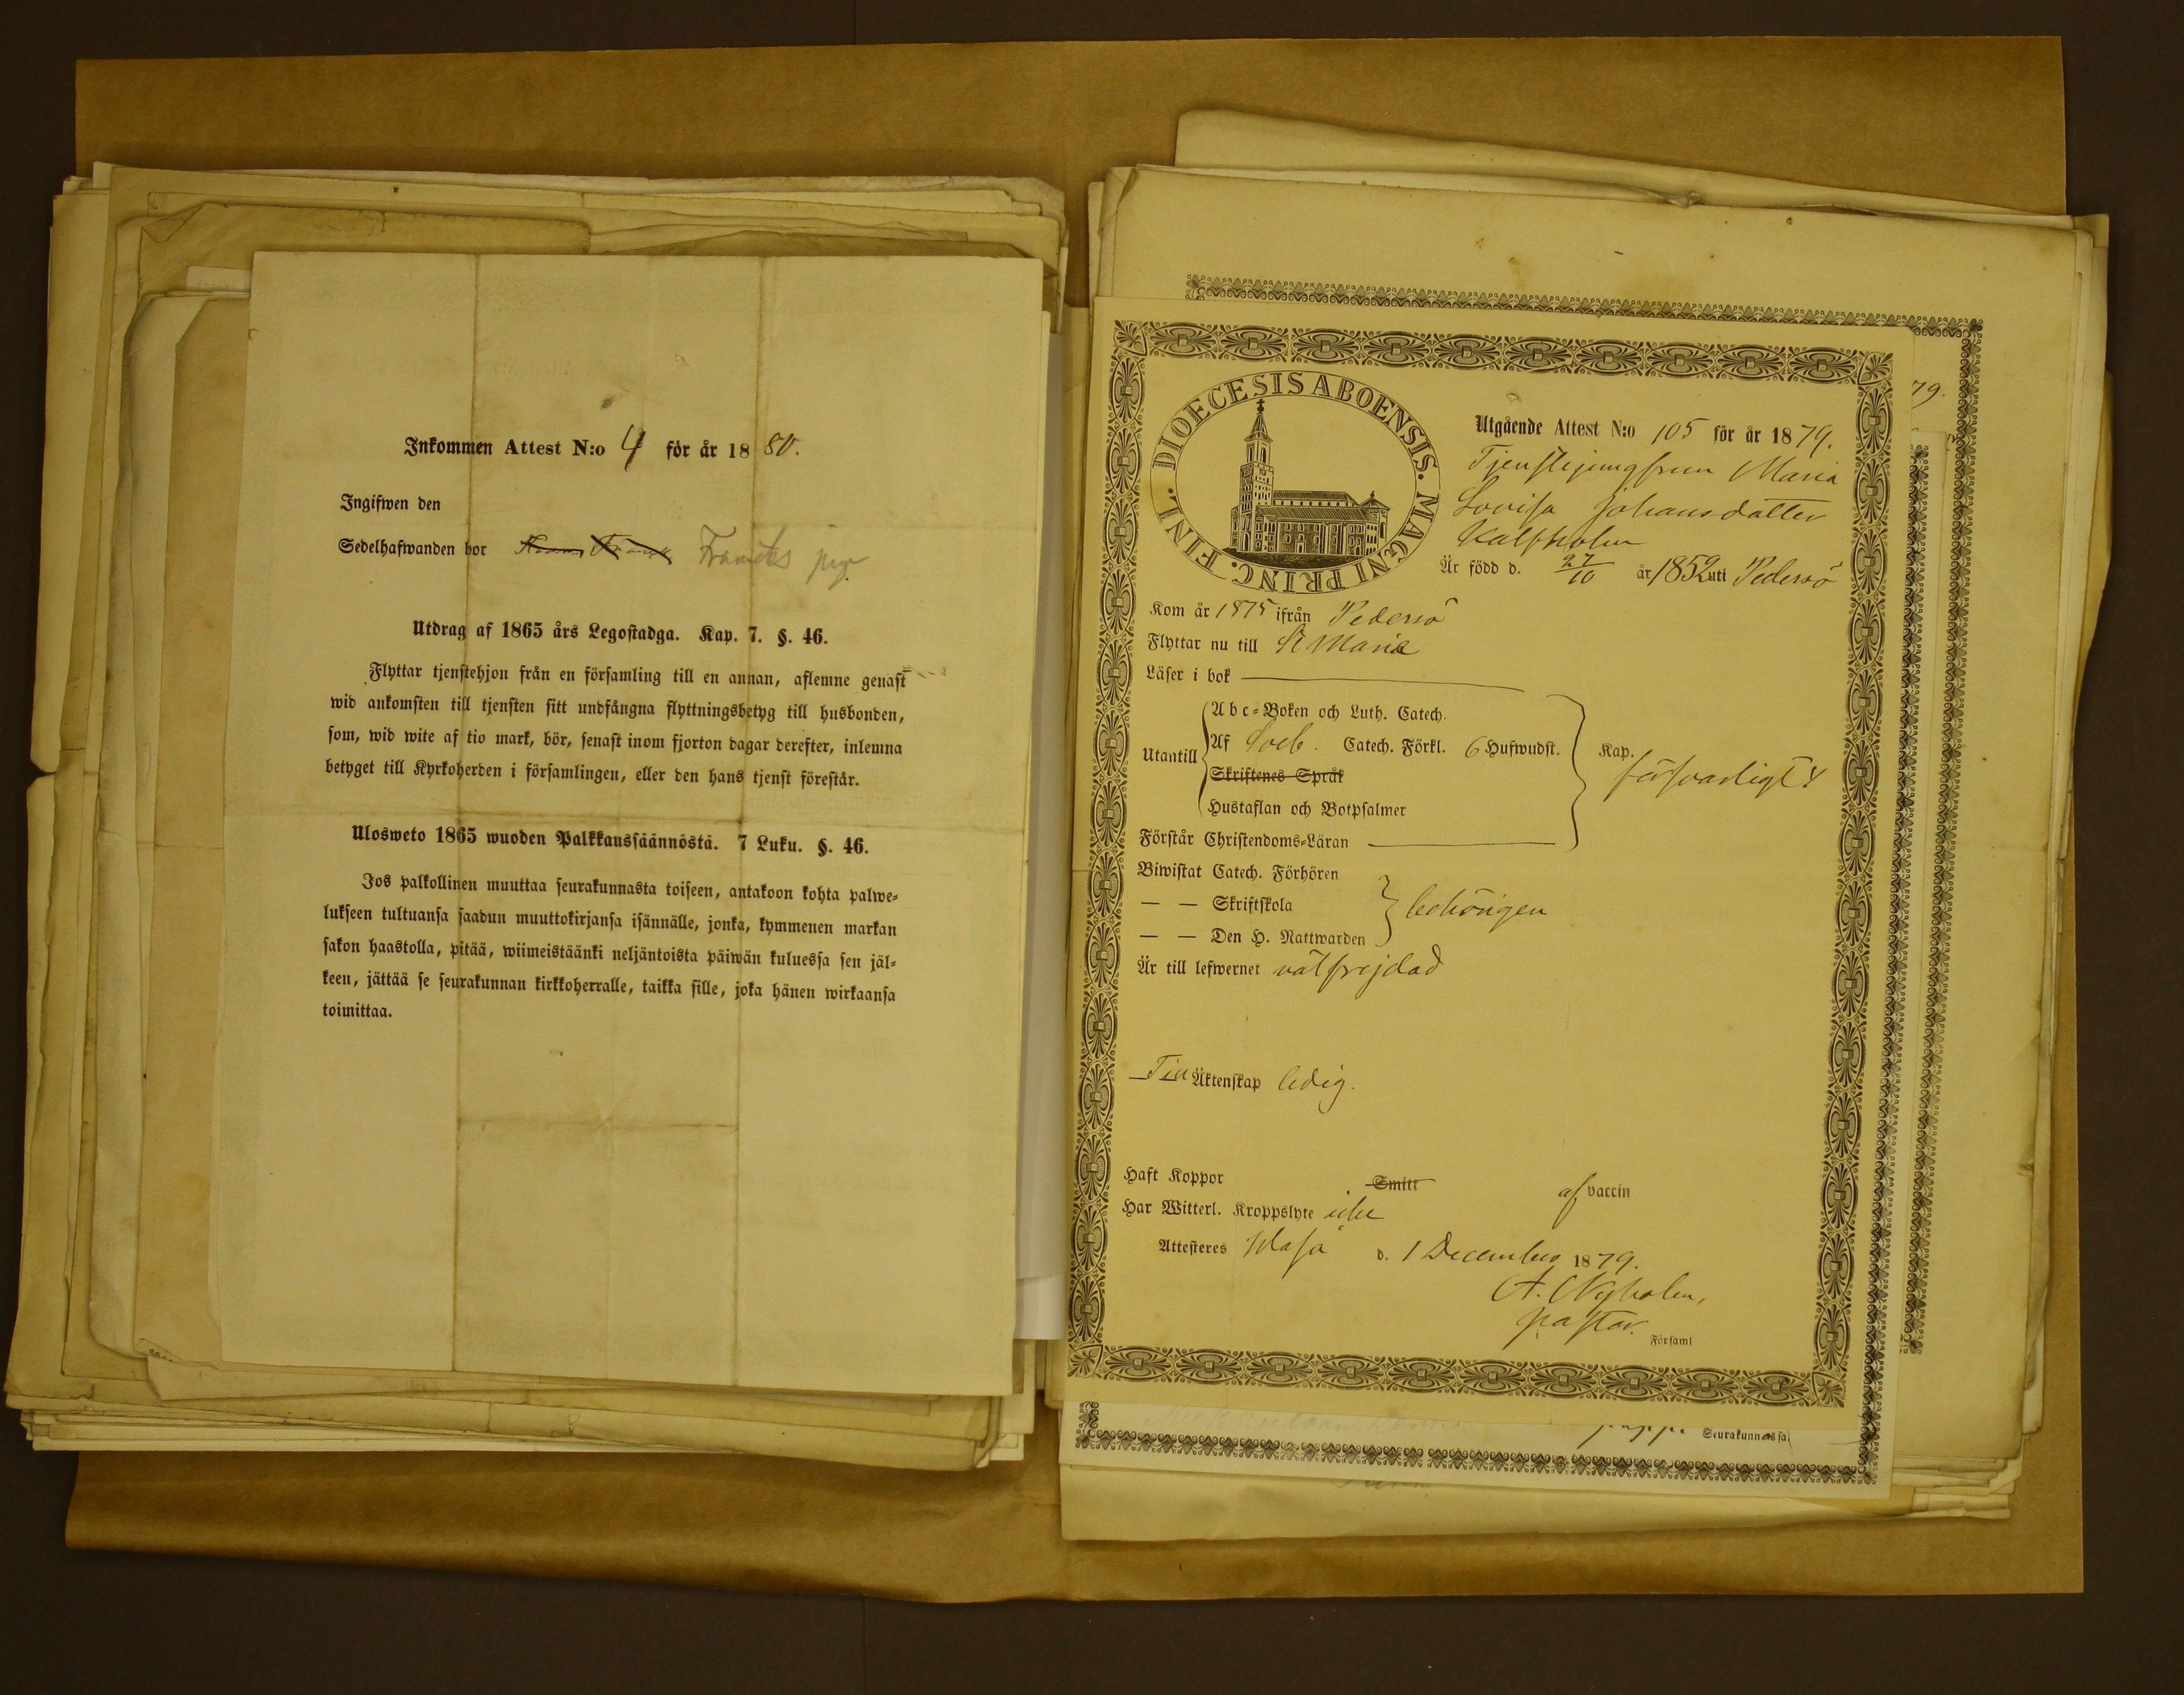 Inkommen Attest N:o 4 för år 1880.
Ingifwen den
Sedelhafwanden bor
Utdrag af 1865 års Legostadga. Kap. 7. §. 46.
Flyttar tjenstehjon från en församling till en annan, aflemne genast
wid ankomsten till tjensten sitt undfångna flyttningsbetyg till husbonden,
som, wid wite af tio mark, bör, senast inom fjorton dagar derefter, inlemna
betyget till Kyrkoherden i församlingen, eller den hans tjenst förestår.
Ulosweto 1865 wuoden Palkkaussäännöstä. 7 Luku. §. 46.
Jos palkollinen muuttaa seurakunnasta toiseen, antakoon kohta palwe-
lukseen tultuansa saadun muuttokirjansa isännälle, jonka, kymmenen markan
sakon haastolla, pitää, wiimeistäänki neljäntoista päiwän kuluessa sen jäl-
keen, jättää se seurakunnan kirkkoherralle, taikka sille, joka hänen wirkaansa
toimittaa.
DIOECESIS ABOENSIS. MAGNI PRINC. FINL.
Utgående Attest N:o 105 för år 1879.
Tjenstejungfrun Maria
Lovisa Johansdotter
Kalfholm
Är född d. 27/10 år 1852 uti Pedersö
Kom år 1875 ifrån Pedersö
Flyttar nu till St Marie
Läser i bok
Utantill
Abc-Boken och Luth. Catech.
Af Sveb. Catech. Förkl. 6 Hufwudst.
Skriftenes Språk
Hustaflan och Botpsalmer
Kap.
försvarligt
Förstår Christendoms-Läran
Biwistat Catech. Förhören
— — Skriftskola
— — Den H. Nattwarden
behörigen
Är till lefwernet välfrejdad
Till Äktenskap ledig.
Haft Koppor Smitt af vaccin
Har Witterl. Kroppslyte icke
Attesteres Wasa d. 1 December 1879.
A. Nyholm,
pastor.
Församl
79.
Seurakunnassa